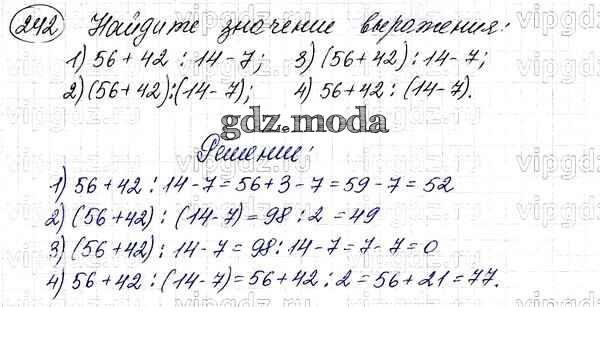 242 Найдите значение выражения:
1) 56 + 42 : 14 - 7; 3) (56 + 42) : 14 - 7;
2) (56 + 42) : (14 - 7); 4) 56 + 42 : (14 - 7).
gdz.moda
Решение:
1) 56 + 42 : 14 - 7 = 56 + 3 - 7 = 59 - 7 = 52
2) (56 + 42) : (14 - 7) = 98 : 2 = 49
3) (56 + 42) : 14 - 7 = 98 : 14 - 7 = 7 - 7 = 0
4) 56 + 42 : (14 - 7) = 56 + 42 : 2 = 56 + 21 = 77.